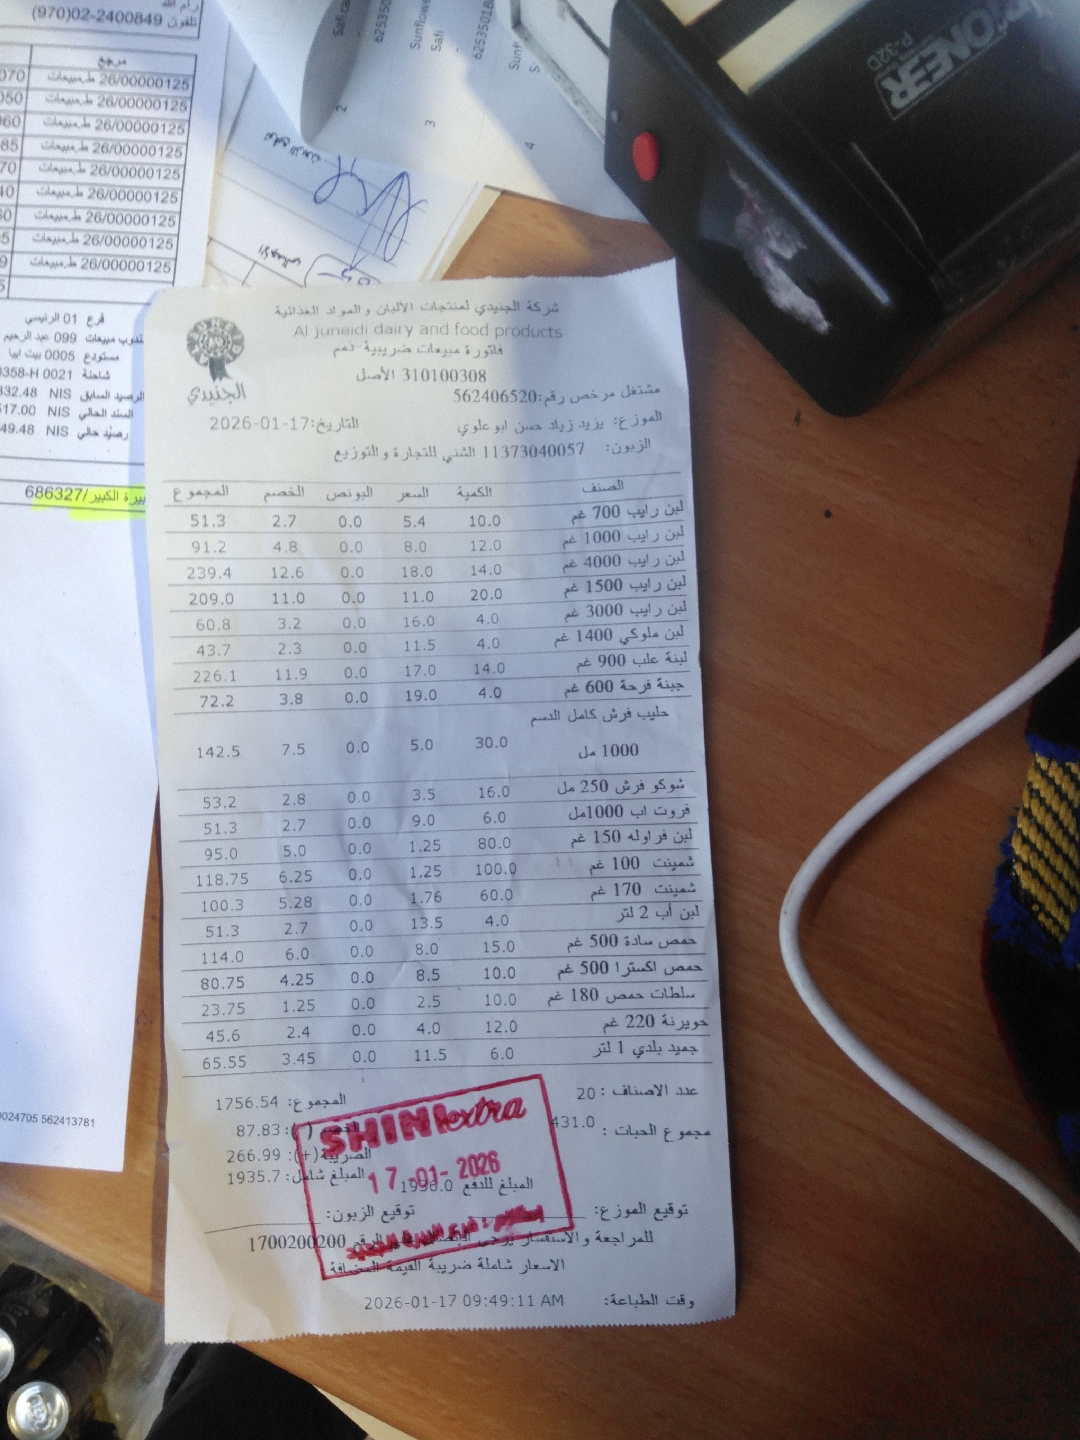 رام الله
تلفون 2400849-02(970)
مرجع
26/00000125 ط.مبيعات
26/00000125 ط.مبيعات
26/00000125 ط.مبيعات
26/00000125 ط.مبيعات
26/00000125 ط.مبيعات
26/00000125 ط.مبيعات
26/00000125 ط.مبيعات
26/00000125 ط.مبيعات
26/00000125 ط.مبيعات
فرع 01 الرئيسي
مندوب مبيعات 099 عبد الرحيم
مستودع 0005 بيت ايبا
شاحنة 0021 H-0358
الرصيد السابق 332.48 NIS
السند الحالي 517.00 NIS
رصيد حالي 49.48 NIS
بيرة الكبير/686327
0024705 562413781
توقيع الزبون
الإجمالي
Safi
Sunflower
Safi
2
3
4
P-32D
شركة الجنيدي لمنتجات الألبان والمواد الغذائية
Al juneidi dairy and food products
فاتورة مبيعات ضريبية ذمم
310100308 الأصل
الجنيدي
مشتغل مرخص رقم:562406520
الموزع: يزيد زياد حسن ابو علوي التاريخ:2026-01-17
الزبون: 11373040057 الشني للتجارة والتوزيع
الصنف الكمية السعر البونص الخصم المجموع
لبن رايب 700 غم 10.0 5.4 0.0 2.7 51.3
لبن رايب 1000 غم 12.0 8.0 0.0 4.8 91.2
لبن رايب 4000 غم 14.0 18.0 0.0 12.6 239.4
لبن رايب 1500 غم 20.0 11.0 0.0 11.0 209.0
لبن رايب 3000 غم 4.0 16.0 0.0 3.2 60.8
لبن ملوكي 1400 غم 4.0 11.5 0.0 2.3 43.7
لبنة علب 900 غم 14.0 17.0 0.0 11.9 226.1
جبنة فرحة 600 غم 4.0 19.0 0.0 3.8 72.2
حليب فرش كامل الدسم
1000 مل 30.0 5.0 0.0 7.5 142.5
شوكو فرش 250 مل 16.0 3.5 0.0 2.8 53.2
فروت اب 1000مل 6.0 9.0 0.0 2.7 51.3
لبن فراوله 150 غم 80.0 1.25 0.0 5.0 95.0
شمينت 100 غم 100.0 1.25 0.0 6.25 118.75
شمينت 170 غم 60.0 1.76 0.0 5.28 100.3
لبن أب 2 لتر 4.0 13.5 0.0 2.7 51.3
حمص سادة 500 غم 15.0 8.0 0.0 6.0 114.0
حمص اكسترا 500 غم 10.0 8.5 0.0 4.25 80.75
سلطات حمص 180 غم 10.0 2.5 0.0 1.25 23.75
حويرنة 220 غم 12.0 4.0 0.0 2.4 45.6
جميد بلدي 1 لتر 6.0 11.5 0.0 3.45 65.55
عدد الاصناف : 20 المجموع: 1756.54
مجموع الحبات : 431.0 الخصم(-): 87.83
الضريبة(+): 266.99
المبلغ شامل: 1935.7
المبلغ للدفع 1936.0
SHINI extra
17-01-2026
توقيع الموزع: توقيع الزبون:
للمراجعة والاستفسار يرجى الاتصال على الرقم 1700200200
الاسعار شاملة ضريبة القيمة المضافة
وقت الطباعة: 2026-01-17 09:49:11 AM